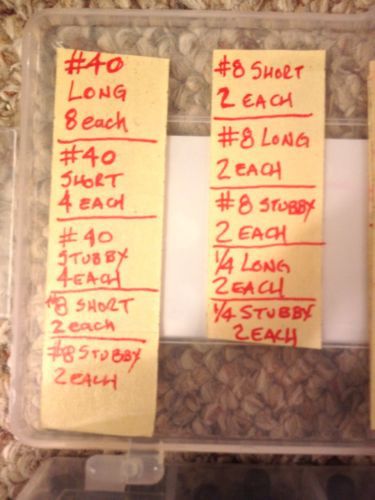 #40
LONG
8 each
#40
SHORT
4 EACH
#40
STUBBY
4 EACH
#8 SHORT
2 each
#8 STUBBY
2 EACH
#8 SHORT
2 EACH
#8 LONG
2 EACH
#8 STUBBY
2 EACH
1/4 LONG
2 EACH
1/4 STUBBY
2 EACH